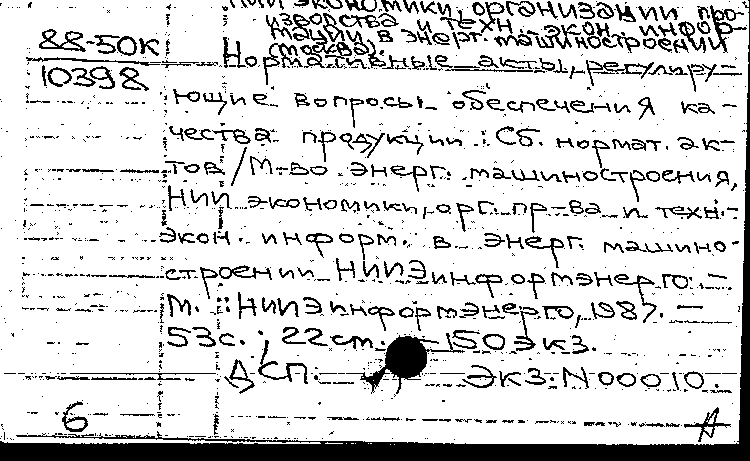 НИИ экономики, организации про-
изводства и техн.-экон. инфор-
мации в энерг. машиностроении
(Москва).
88-50к
10398
Нормативные акты, регулиру-
ющие вопросы обеспечения ка-
чества продукции : Сб. нормат. ак-
тов / М-во энерг. машиностроения,
НИИ экономики, орг. пр-ва и техн.-
экон. информ. в энерг. машино-
строении НИИЭинформэнерго. —
М. : НИИЭинформэнерго, 1987. —
53с. ; 22 см. — 150 экз.
ДСП. Экз. N 00010.
6